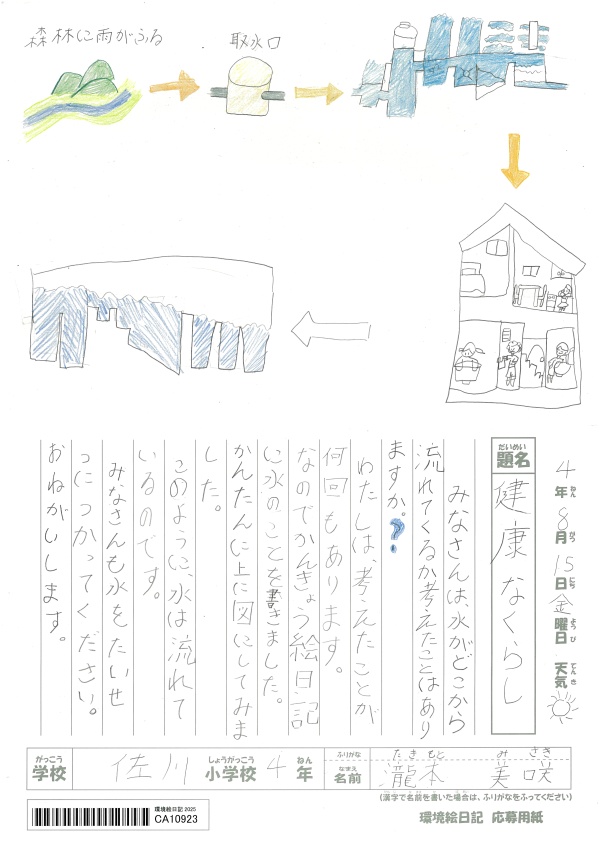 森林に雨がふる
取水口
4年ねん8月がつ15日にち金曜ようび日 天気てんき
だいめい
題名
健康なくらし
みなさんは、水がどこから
流れてくるか考えたことはあり
ますか。?
わたしは、考えたことが
何回もあります。
なのでかんきょう絵日記
に水のことを書きました。
かんたんに上に図にしてみま
した。
このように、水は流れて
いるのです。
みなさんも水をたいせ
つにつかってください。
おねがいします。
がっこう しょうがっこう ねん
学校 佐川 小学校 4年
ふりがな たきもと みさき
なまえ
名前 瀧本 美咲
(漢字で名前を書いた場合は、ふりがなをふってください)
環境絵日記 2025
CA10923
環境絵日記 応募用紙